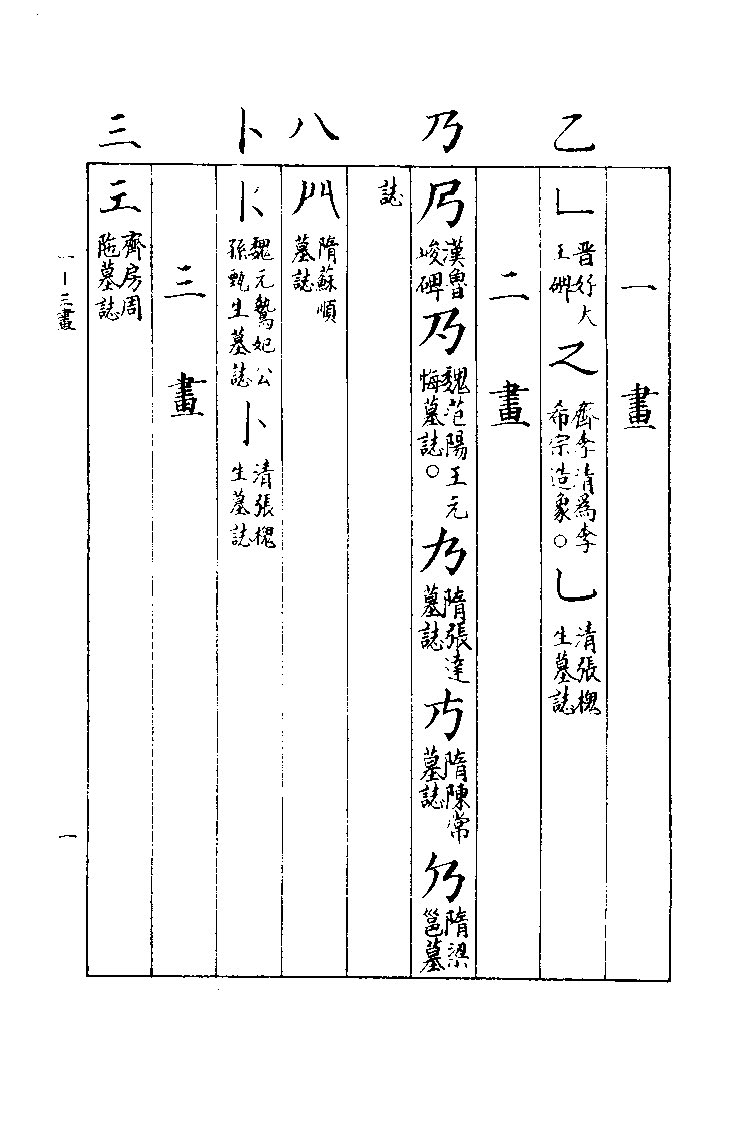 乙
一畫
乚 晋好大王碑 齊李清爲李希宗造象。乚 清張生墓誌
二畫
乃
漢魯峻碑 乃 魏范陽王元悔墓誌。隋張達墓誌 隋陳常墓誌 隋梁邕墓
誌
八
隋蘇順墓誌
卜
魏元鷙妃公孫甄生墓誌 卜 清張生墓誌
三畫
三
齊房周陁墓誌
一—三畫
一